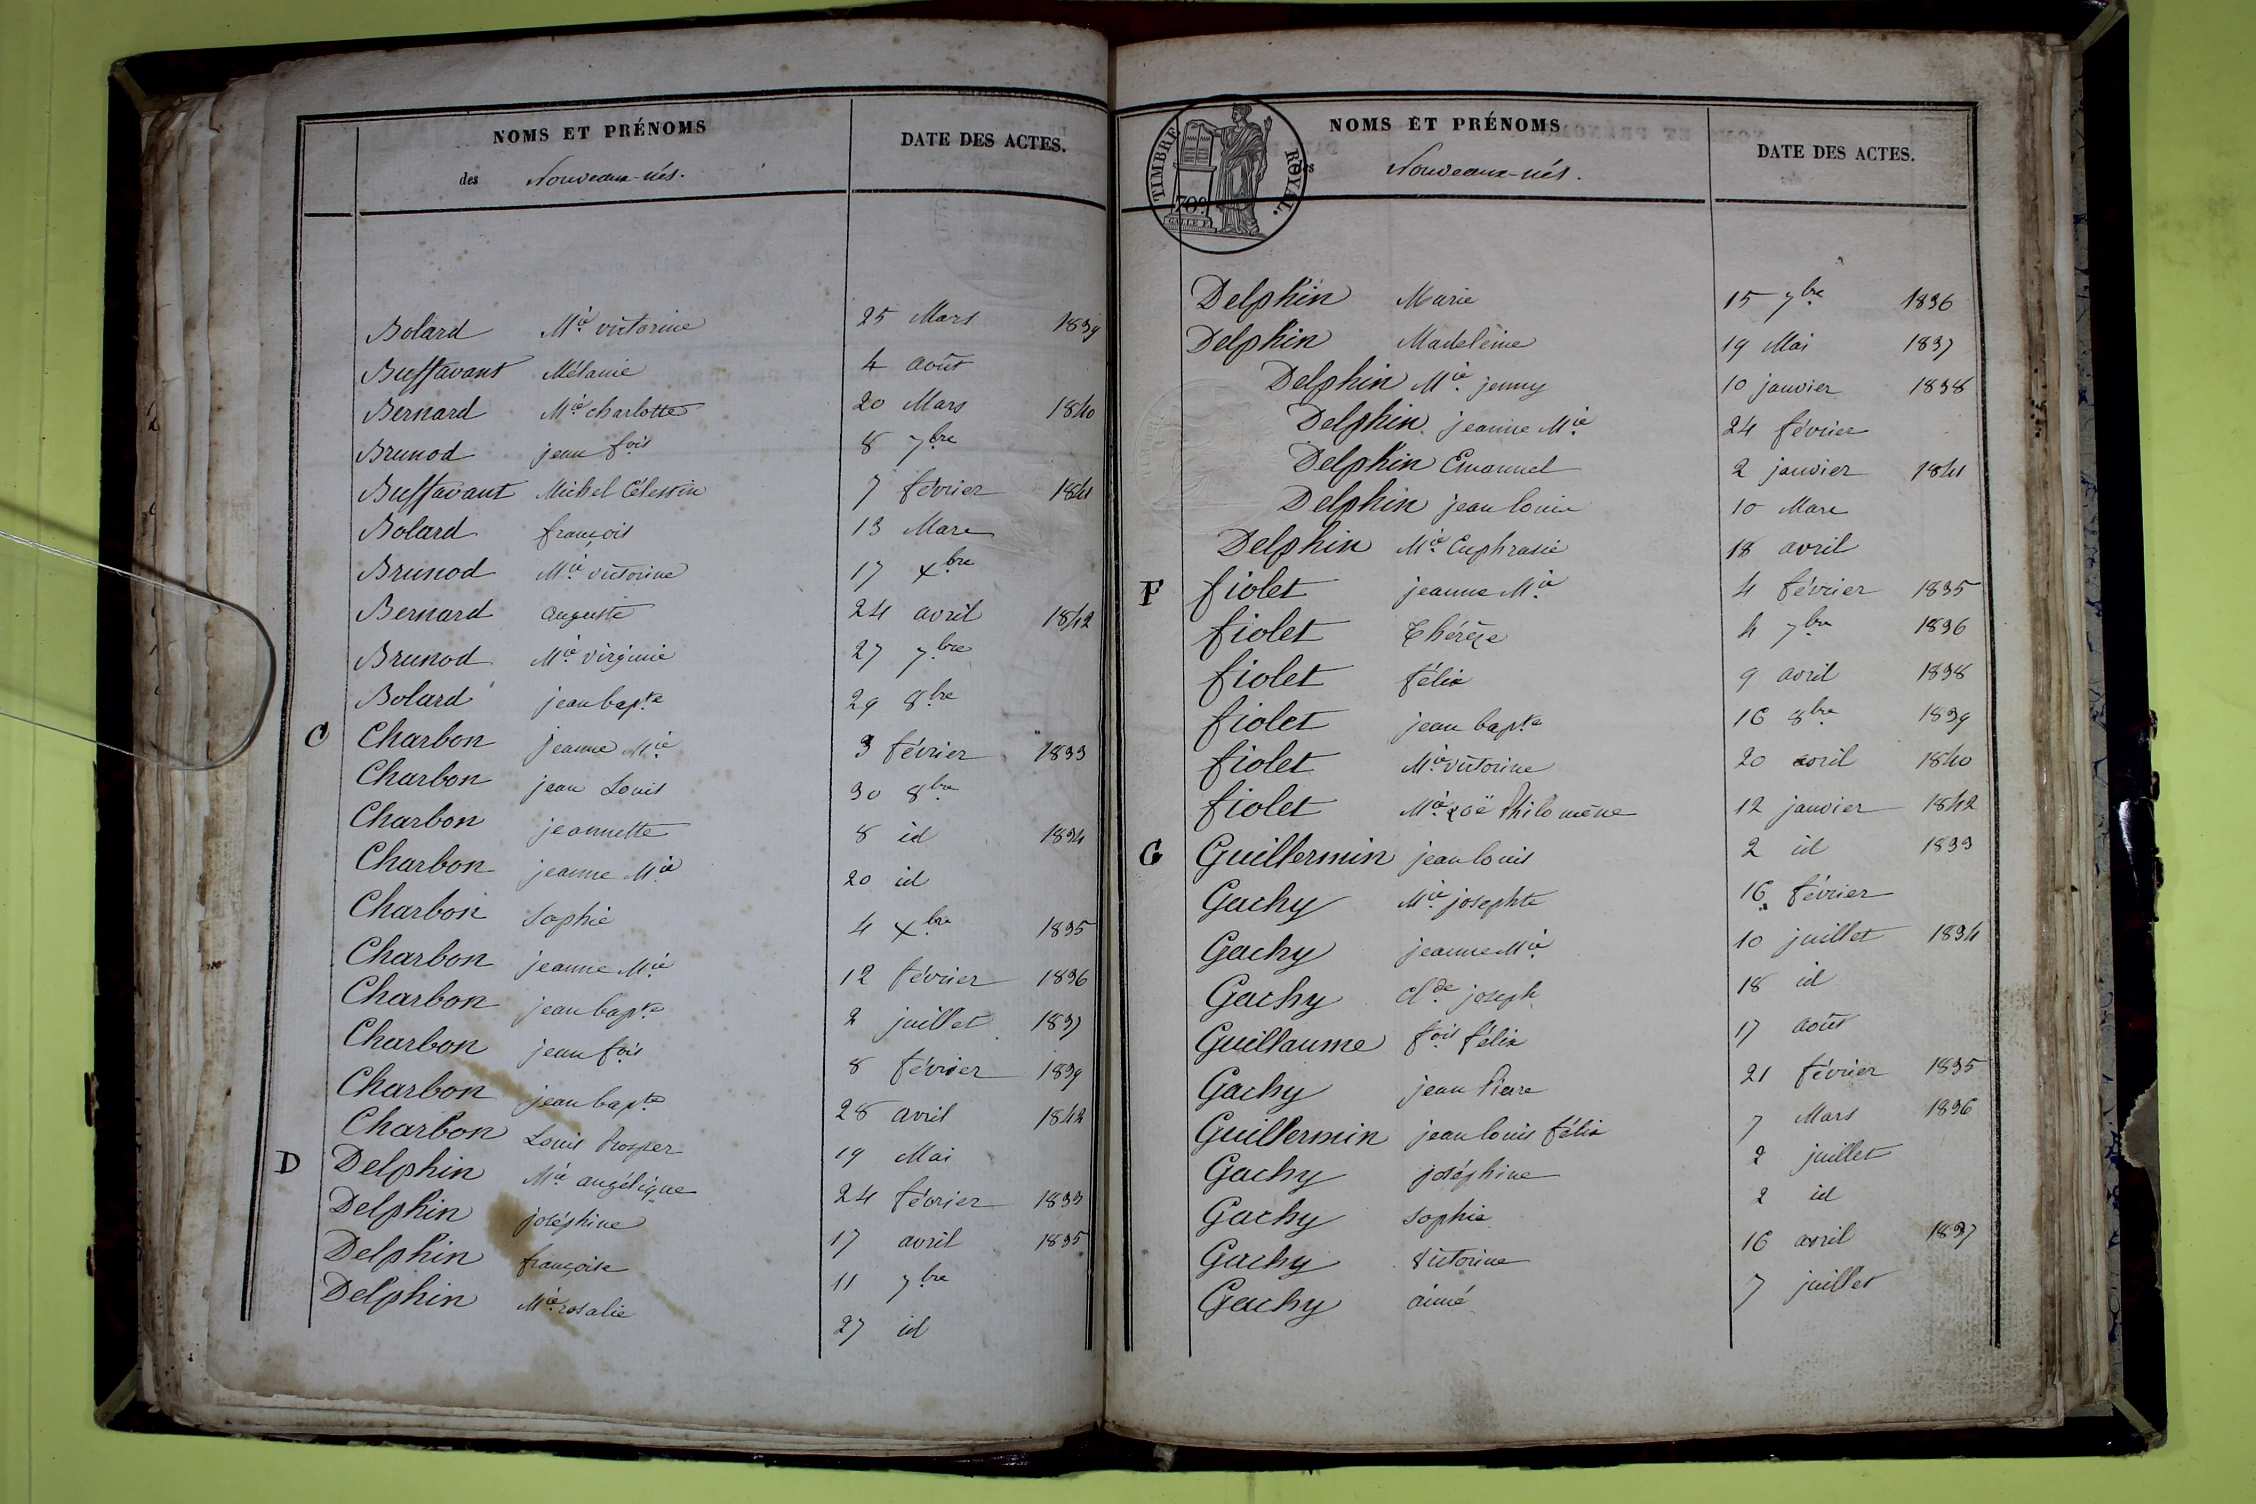 NOMS ET PRÉNOMS
DATE DES ACTES.
des Nouveaux-nés.
Bolard Mie victorine 25 Mars 1839
Buffavant Mélanie 4 août
Bernard Mie charlotte 20 Mars 1840
Brunod jean fois 8 7bre
Buffavant Michel Célestin 7 février 1841
Bolard françois 13 Mars
Brunod Mie victorine 17 xbre
Bernard auguste 24 avril 1842
Brunod Mie virginie 27 7bre
Bolard jean bapte 29 8bre
C Charbon jeanne Mie 3 février 1833
Charbon jean Louis 30 8bre
Charbon jeannette 8 id 1834
Charbon jeanne Mie 20 id
Charbon Sophie 4 xbre 1835
Charbon jeanne Mie 12 février 1836
Charbon jean bapte 2 juillet 1837
Charbon jean fois 8 février 1839
Charbon jean bapte 28 avril 1842
Charbon Louis Prosper 19 Mai
D Delphin Mie angélique 24 février 1833
Delphin joséphine 17 avril 1835
Delphin françoise 11 7bre
Delphin Mie rosalie 27 id
TIMBRE ROYAL.
70c
NOMS ET PRÉNOMS
DATE DES ACTES.
Nouveaux-nés.
Delphin Marie 15 7bre 1836
Delphin Madeleine 19 Mai 1837
Delphin Mie jenny 10 janvier 1838
Delphin jeanne Mie 24 février
Delphin Emanuel 2 janvier 1841
Delphin jean louis 10 Mars
Delphin Mie Euphrasie 18 avril
F fiolet jeanne Mie 4 février 1835
fiolet Thérèze 4 7bre 1836
fiolet félix 9 avril 1838
fiolet jean bapte 16 8bre 1839
fiolet Mie victorine 20 avril 1840
fiolet Mie zoë Philomène 12 janvier 1842
G Guillermin jean louis 2 id 1833
Gachy Mie josephte 16 février
Gachy jeanne Mie 10 juillet 1834
Gachy Clde joseph 18 id
Guillaume fois félix 17 août
Gachy jean Pierre 21 février 1835
Guillermin jean louis félix 7 Mars 1836
Gachy joséphine 2 juillet
Gachy Sophie 2 id
Gachy Victorine 16 avril 1837
Gachy aimé 7 juillet